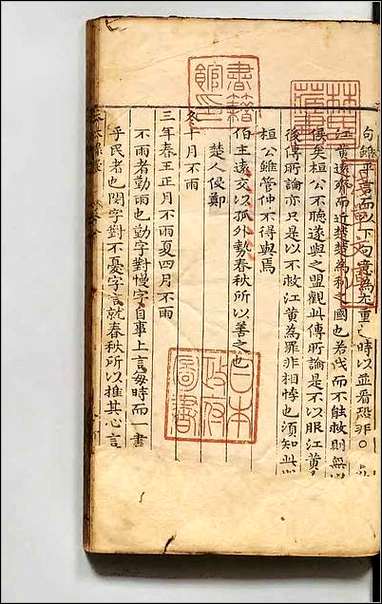 句雖平言而以下句意為尤重○時以並看殺非○
江黃遠齊而近楚楚為利之國也若伐而不能救則無以
侯矣桓公不聽遂與之盟觀此傳所論是不以服江黃
後傳所論亦只是以不救江黃為罪非相悖也須知
桓公雖管仲不得與焉
伯主遠交以孤外勢春秋所以善之也
楚人侵鄭
冬十月不雨
三年春王正月不雨夏四月不雨
不雨者勤雨也勤字對慢字自事上言每時而一書
乎民者也閔字對不憂字言就春秋所以推其心言
書籍館印
日本政府圖書